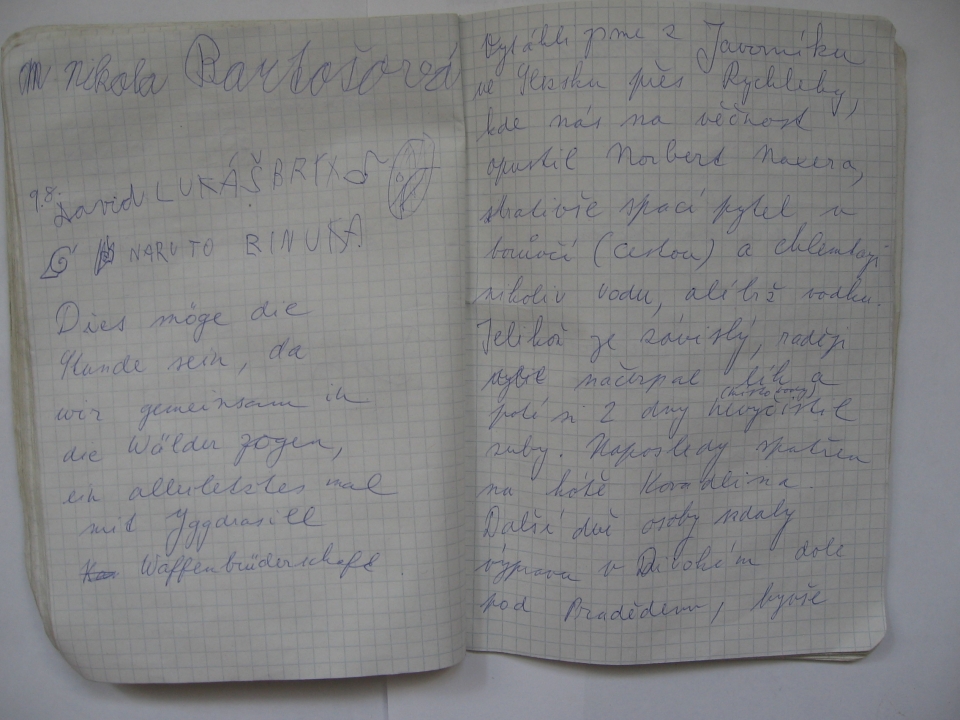 m Nikola Bartošová
9.8. David LUKÁŠ BRYX
NARUTO RINUKA
Dies möge die
Stunde sein, da
wir gemeinsam in
die Wälder zogen,
ein allerletztes mal
mit Yggdrasill
Waffenbrüderschaft
Vyrazili jsme z Javorníku
ve Slezsku přes Rychleby,
kde nás na věčnost
opustil Norbert Naxera,
ztrativše spací pytel v
borůvčí (cestou) a chlemtaji
nikoliv vodu, alébrž vodku.
Jelikož je závislý, raději
načerpal líh a
poté si 2 dny nevyčistil
zuby. Naposledy spatřen
na kótě
Další dvě osoby vzdaly
výpravu v Divokém dole
pod Pradědem, byvše